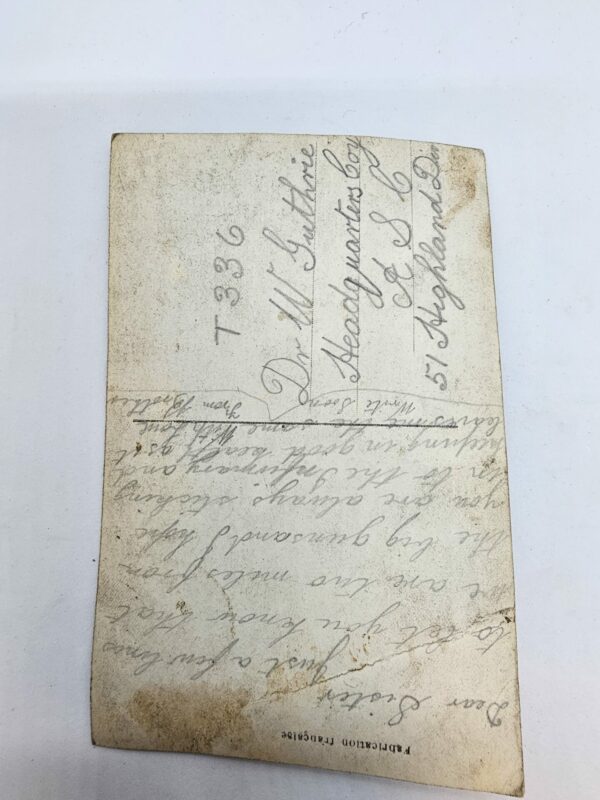 Fabrication française
Dear Sister
Just a few lines
to let you know that
we are two miles from
the big guns and I hope
you are always sticking
in to the Infirmary and
keeping in good health as it
leaves me the same With Love
Write Soon From Brother
T 336
Dr W Guthrie
Headquarters Coy
A S C
51 Highland Div